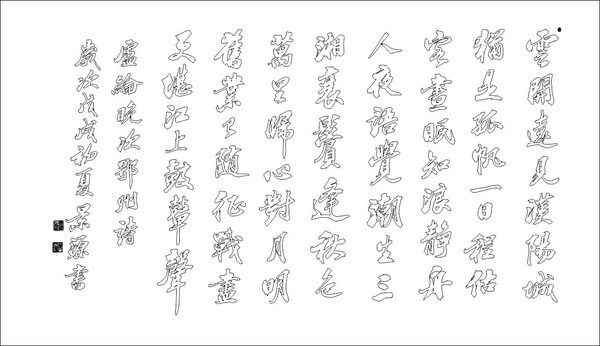 雲開遠見漢陽城
猶是孤帆一日程估
客晝眠知浪靜舟
人夜語覺潮生三
湘衰鬢逢秋色
萬里歸心對月明
舊業已隨征戰盡
更堪江上鼓鼙聲
盧綸晚次鄂州詩
歲次戊戌初夏
景書